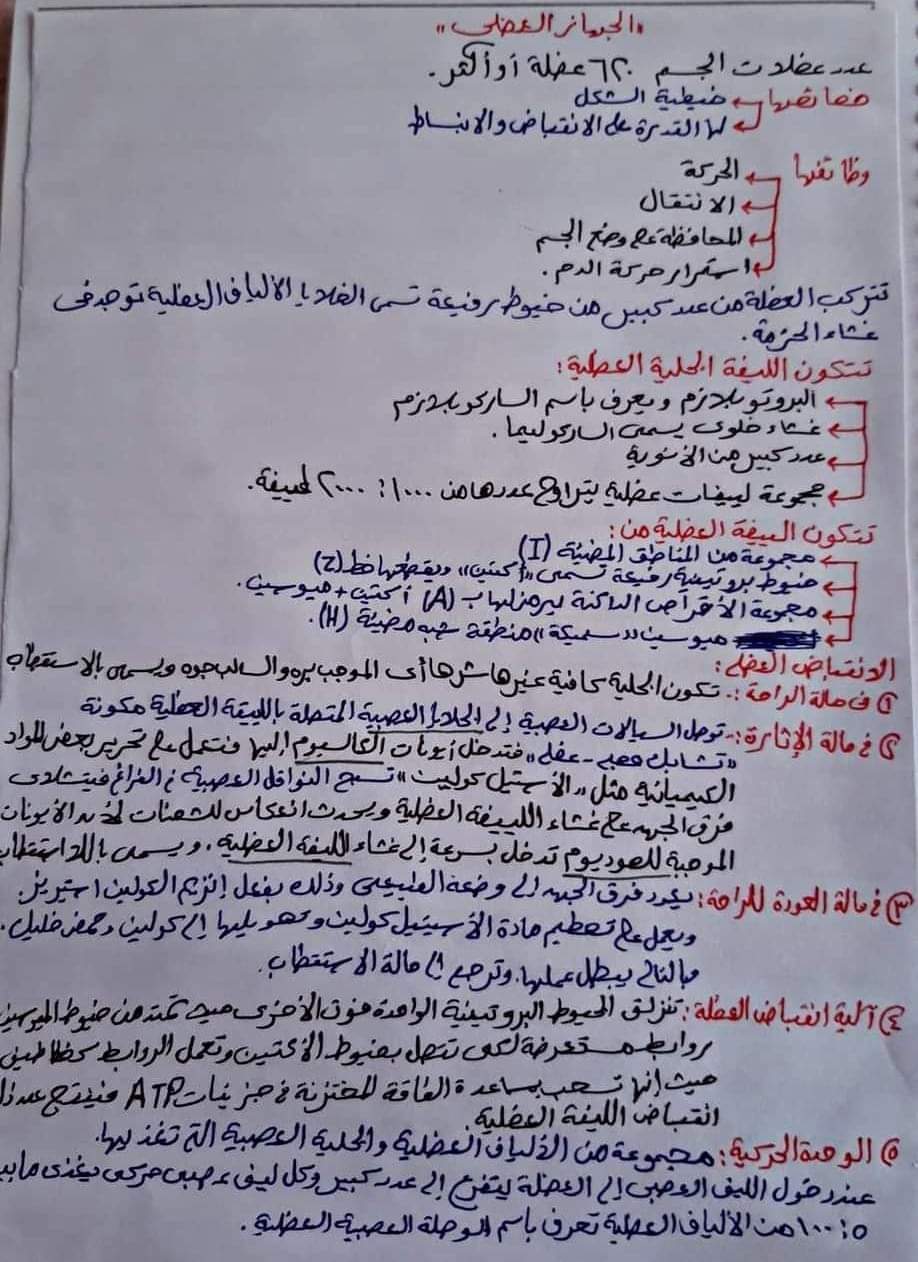 "الجهاز العضلى"
عدد عضلات الجسم ٦٢٠ عضلة أو أكثر.
خصائصها خيطية الشكل
لها القدرة على الانقباض والانبساط
وظائفها الحركة
الانتقال
المحافظة على وضع الجسم
استمرار حركة الدم.
تتركب العضلة من عدد كبير من خيوط رفيعة تسمى الخلايا الألياف العضلية توجد فى
غشاء الحزمة.
تتكون الليفة الخلية العضلية:
البروتوبلازم ويعرف باسم الساركوبلازم
غشاء خلوى يسمى الساركوليما.
عدد كبير من الأنوية
مجموعة لييفات عضلية يتراوح عددها من ١٠٠٠: ٢٠٠٠ لييفة.
تتكون الليفة العضلية من:
مجموعة من المناطق المضيئة (I)
خيوط بروتينية رفيعة تسمى "أكتين" ويقطعها خط (Z)
مجموعة الأقراص الداكنة يرمز لها ب (A) أكتين + ميوسين.
ميوسين "سميكة" منطقة شبه مضيئة (H).
الانقباض العضلى:
١ فى حالة الراحة:- تكون الخلية كافية غير هاشرها أى الموجب بره والسالب جوه ويسمى بالاستقطاب
٢ فى حالة الإثارة:- توصل السيالات العصبية إلى الخلايا العصبية المتصلة بالليفة العضلية مكونة
"تشابك عصبى - عضلى" فتدخل أيونات الكالسيوم إليها فتعمل على تحرير بعض المواد
الكيميائية مثل "الأستيل كولين" تسبح النواقل العصبية فى الفراغ فيتلاشى
فرق الجهد على غشاء الليفة العضلية ويحدث انعكاس للشحنات لأن الأيونات
الموجبة للصوديوم تدخل بسرعة إلى غشاء الليفة العضلية، ويسمى باللااستقطاب
٣ فى حالة العودة للراحة: يعود فرق الجهد إلى وضعه الطبيعى وذلك بفعل إنزيم الكولين استيريز
ويعمل على تحطيم مادة الأسيتيل كولين وتحويليها إلى كولين وحمض خليك.
وبالتالى يبطل عملها وترجع إلى حالة الاستقطاب.
٤ آلية انقباض العضلة: تنزلق الخيوط البروتينية الواحدة فوق الأخرى حيث تمتد من خيوط الميوسين
روابط مستعرضة لكى تتصل بخيوط الأكتين وتعمل الروابط كخطاطيف
حيث إنها تسحب بمساعدة الطاقة المختزنة فى جزيئات ATP فينتج عن ذلك
انقباض الليفة العضلية.
٥ الوحدة الحركية: مجموعة من الألياف العضلية والخلية العصبية التى تغذيها.
عند دخول الليف العصبى إلى العضلة يتفرع إلى عدد كبير وكل ليف عصبى حركى يغذى ما بين
٥: ١٠٠ من الألياف العضلية تعرف باسم الوصلة العصبية العضلية.